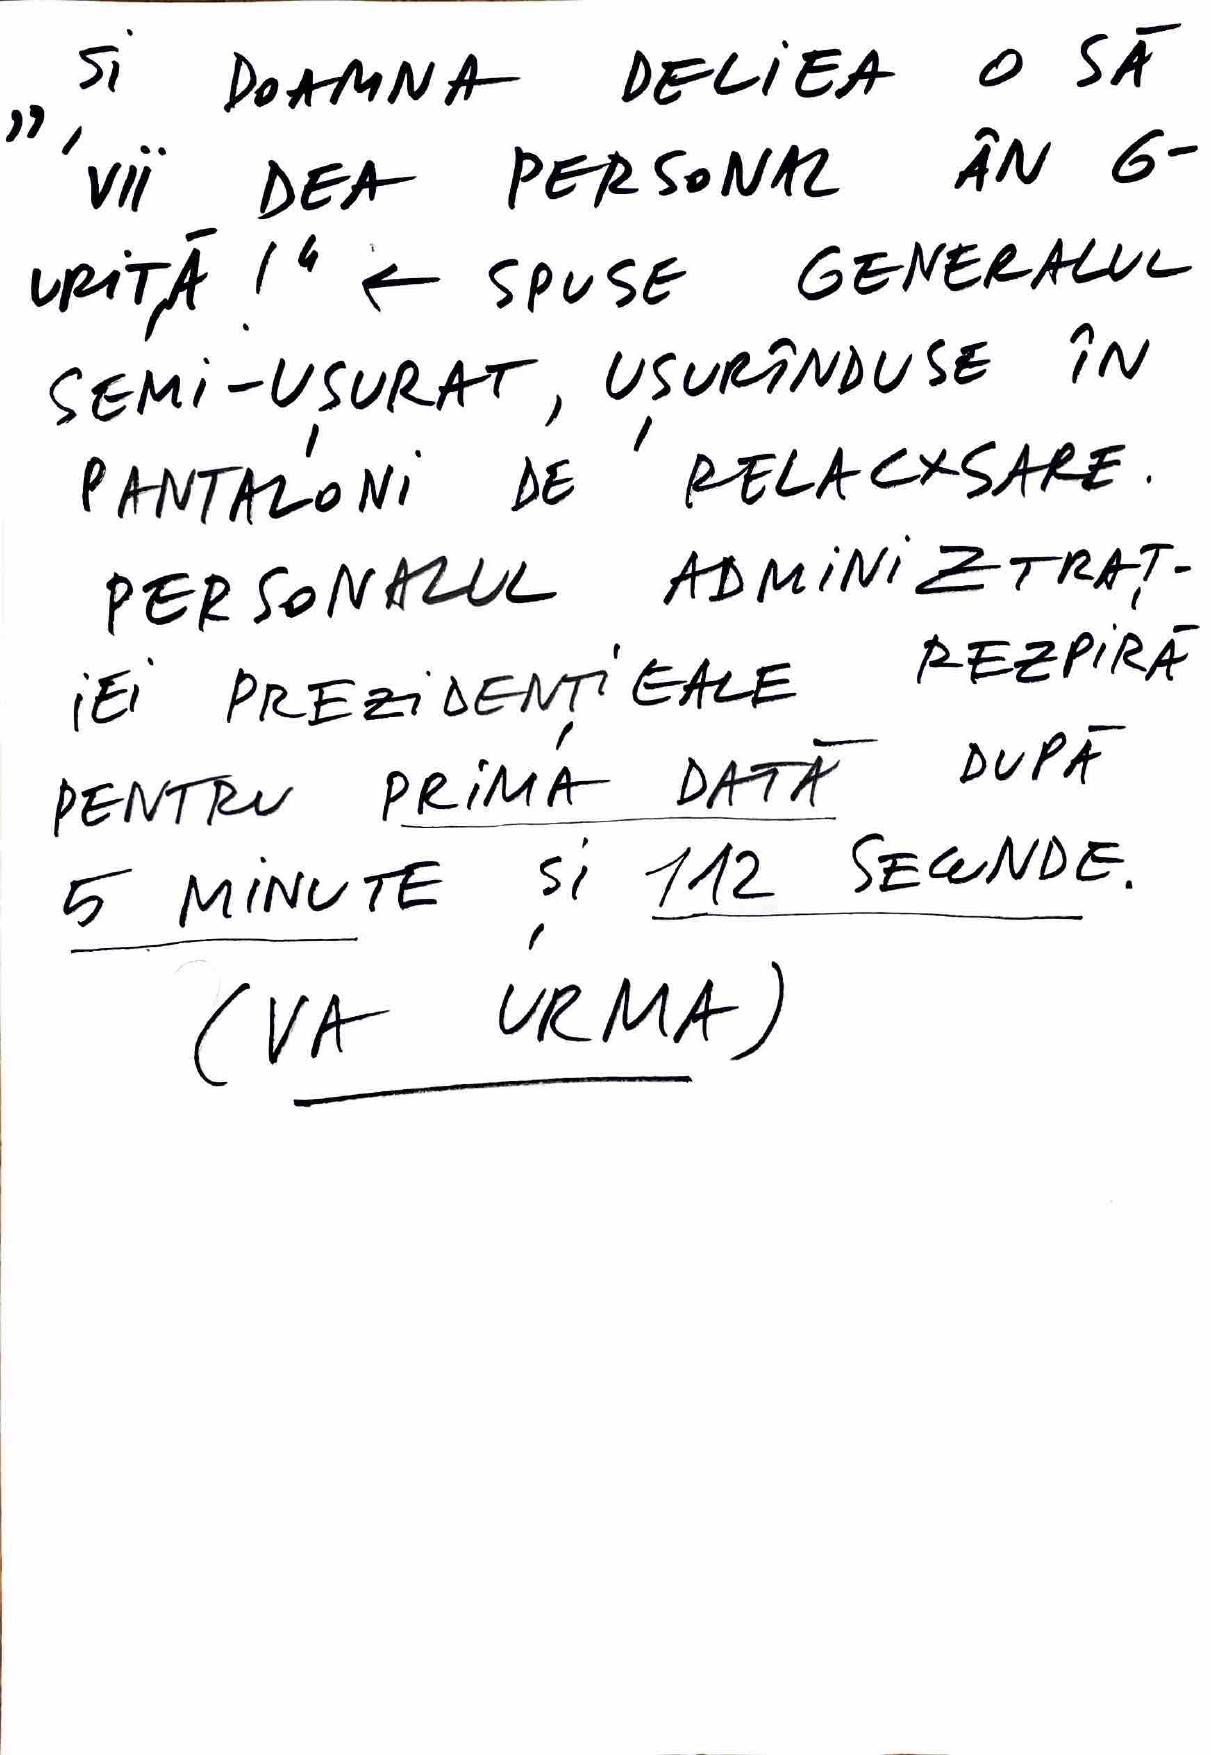 „ȘI DOAMNA DELIEA O SĂ
VII DEA PERSONAL ÂN G-
URIȚĂ!“ ← SPUSE GENERALUL
SEMI-UȘURAT, UȘURÎNDUSE ÎN
PANTALONI DE RELACXSARE.
PERSONALUL ADMINIZTRAȚ-
IEI PREZIDENȚIEALE REZPIRĂ
PENTRU PRIMA DATĂ DUPĂ
5 MINUTE ȘI 112 SECUNDE.
(VA URMA)